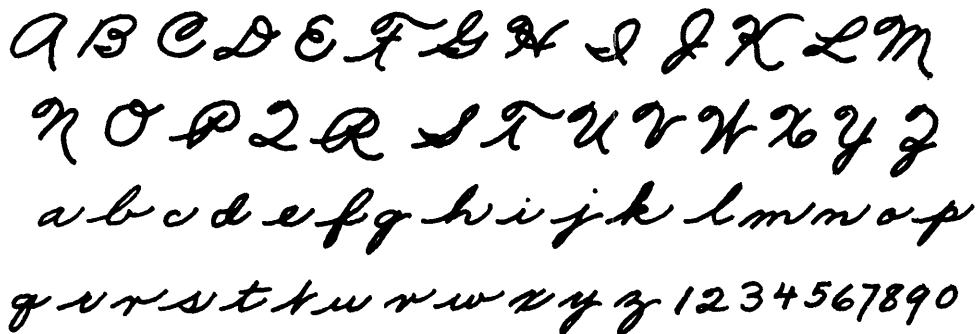 A B C D E F G H I J K L M
N O P Q R S T U V W X Y Z
a b c d e f g h i j k l m n o p
q r r s t t u v w x y z 1 2 3 4 5 6 7 8 9 0